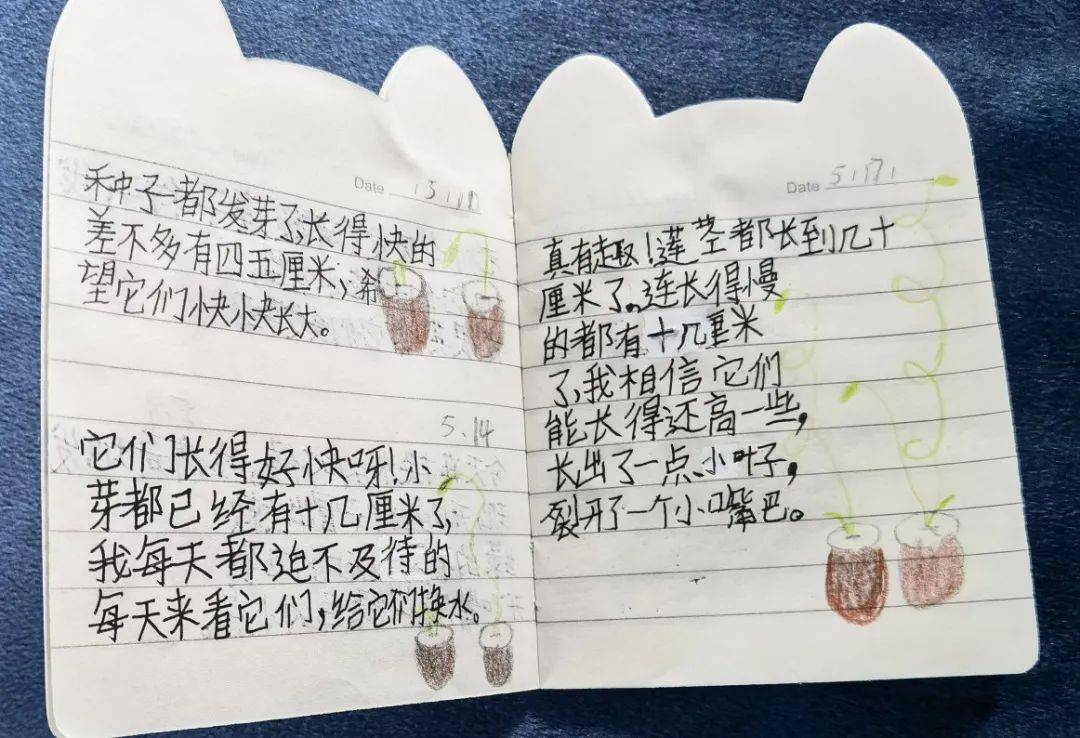 Date
种子都发芽了,长得快的
差不多有四五厘米,希
望它们快快长大。
5.14
它们长得好快呀!小
芽都已经有十几厘米了,
我每天都迫不及待的
每天来看它们,给它们换水。
Date 5.17.
真有趣!莲茎都长到几十
厘米了。连长得慢
的都有十几厘米
了,我相信它们
能长得还高一些,
长出了一点小叶子,
裂开了一个小嘴巴。